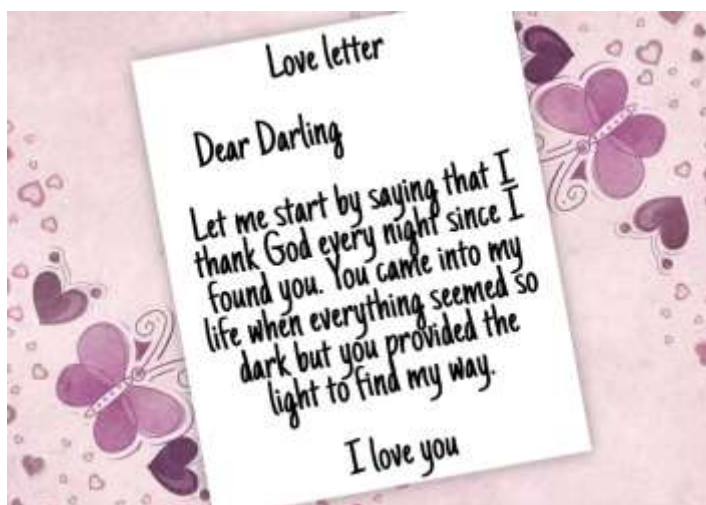 Love letter
Dear Darling
Let me start by saying that I
thank God every night since I
found you. You came into my
life when everything seemed so
dark but you provided the
light to find my way.
I love you